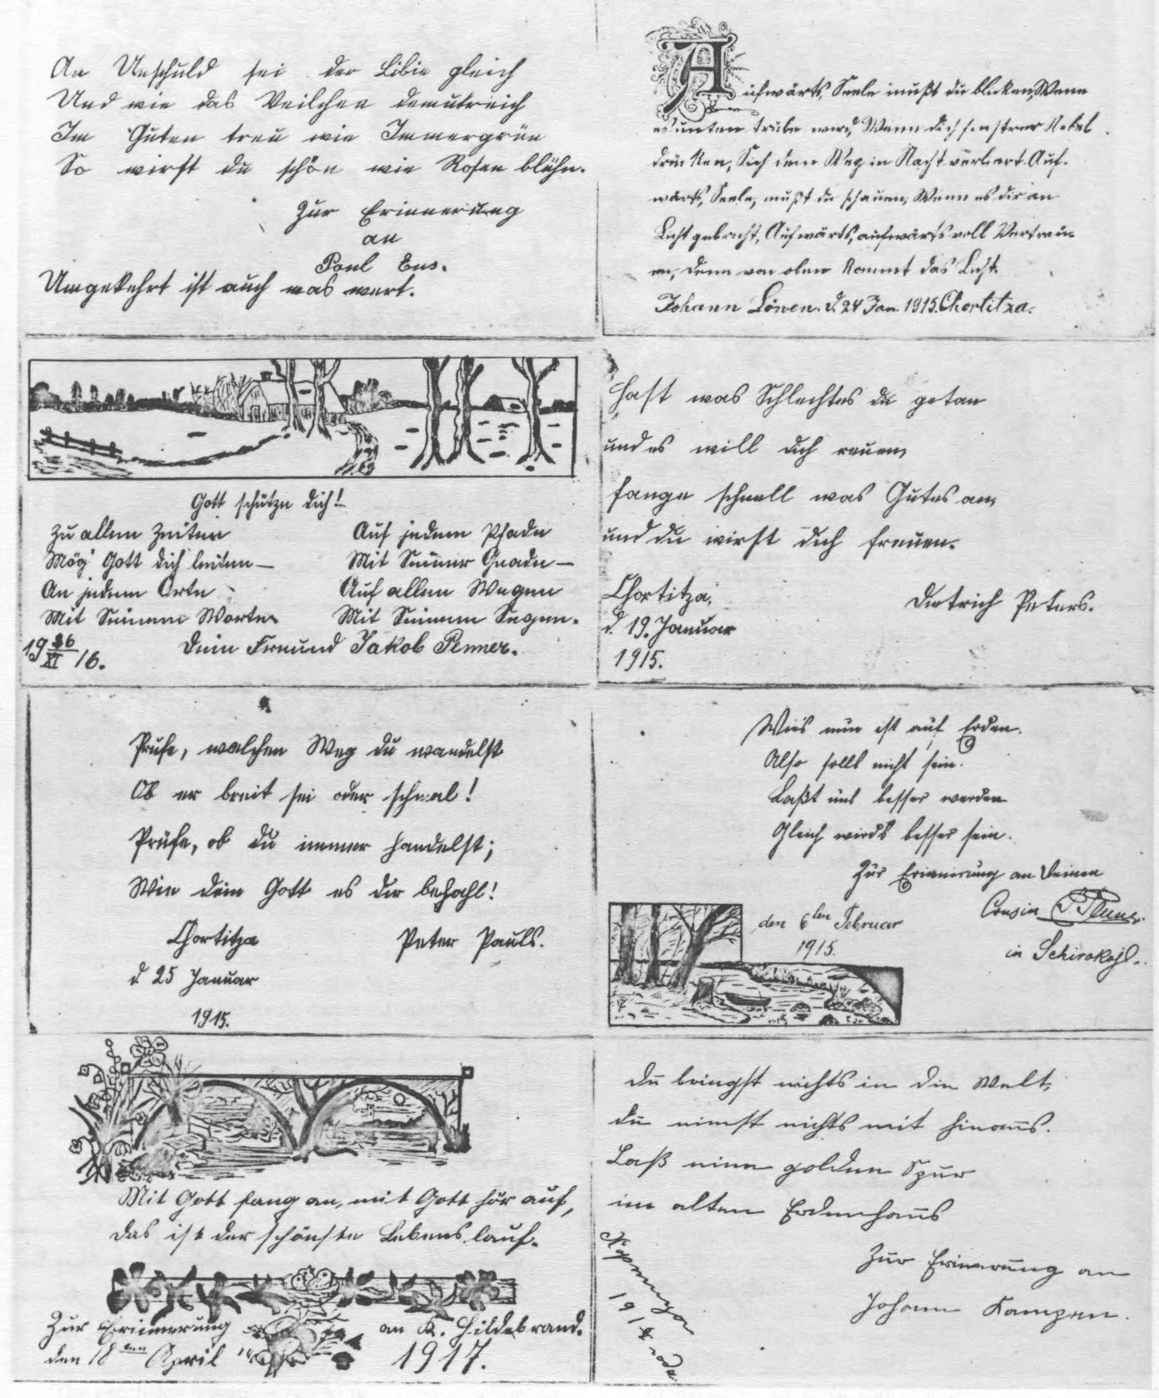 An Unschuld sei der Lilie gleich
Und wie das Veilchen demutreich
Im Guten treu wie Immergrün
So wirst du schön wie Rosen blühn.
Zur Erinnerung
an
Paul Ens.
Umgekehrt ist auch was wert.
Aufwärts, Seele mußt du blicken, Wenn
es unten trübe wird, Wenn dich finstrer Nebel
drücken, Sich dein Weg in Nacht verliert. Auf-
wärts, Seele, mußt du schauen, Wenn es dir an
Licht gebricht, Aufwärts, aufwärts voll Vertrau-
en, denn von oben kommt das Licht.
Johann Löwen. d. 24 Jan. 1915. Chortitza.
Gott schütze dich!
Zu allen Zeiten
Mög' Gott dich leiten —
An jedem Orte
Mit Seinem Worte
Auf jedem Pfade
Mit Seiner Gnade —
Auf allen Wegen
Mit Seinem Segen.
19 XI 16.
Dein Freund Jakob Penner.
Hast was Schlechtes du getan
und es will dich reuen,
fange schnell was Gutes an,
und du wirst dich freuen.
Chortitza,
d. 19. Januar
1915.
Dietrich Peters.
Prüfe, welchen Weg du wandelst
Ob er breit sei oder schmal!
Prüfe, ob du immer handelst;
Wie dein Gott es dir befahl!
Chortitza
d 25 Januar
1915.
Peter Pauls.
Wie's nun ist auf Erden.
Also sollt nicht sein.
Laßt uns besser werden
Gleich wird's besser sein.
Zur Erinnerung an Deinen
Cousin
in
den 6ten Februar
1915.
Mit Gott fang an, mit Gott hör auf,
das ist der schönste Lebenslauf.
Zur Erinnerung an K. Hildebrand.
den 18ten April 1917.
du bringst nichts in die Welt,
du nimst nichts mit hinaus.
Laß eine golden Spur
im alten Erdenhaus
Zur Erinnerung an
Johann Kampen.
1914 года